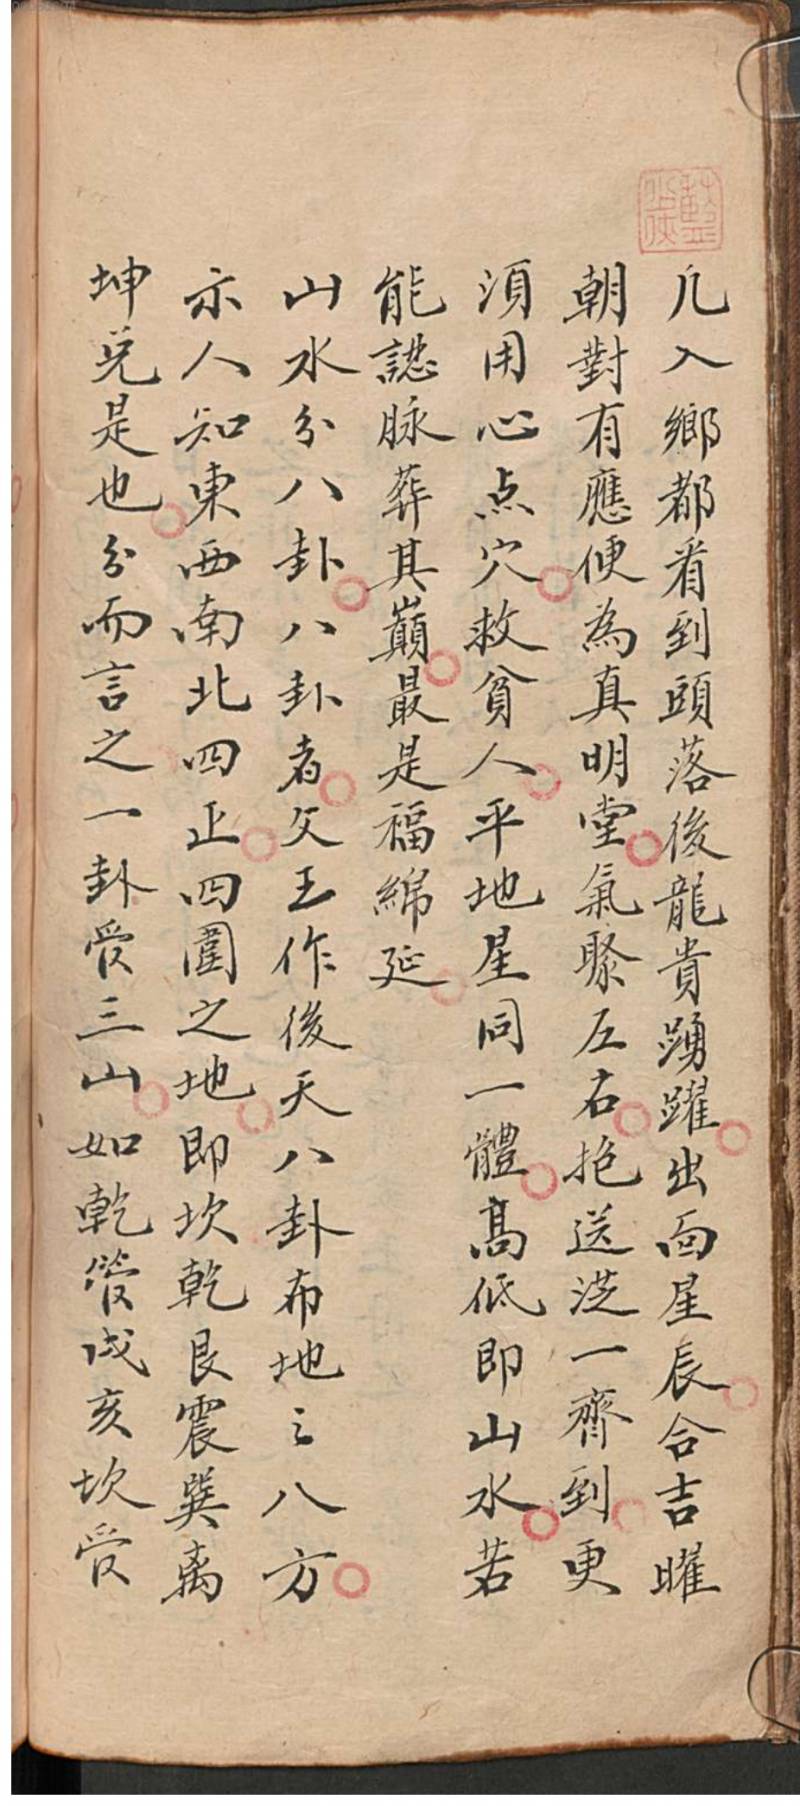 凢入鄉都看到頭落後龍貴踴躍出面星辰合吉曜
朝對有應便為真明堂氣聚左右抱送洸一齊到更
湏用心点穴救貧人平地星同一體高低即山水若
能認脉葬其巔最是福綿延
山水分八卦八卦者文王作後天八卦布地之八方
示人知東西南北四正四圍之地即坎乾艮震巽离
坤兌是也分而言之一卦受三山如乾管戌亥坎受